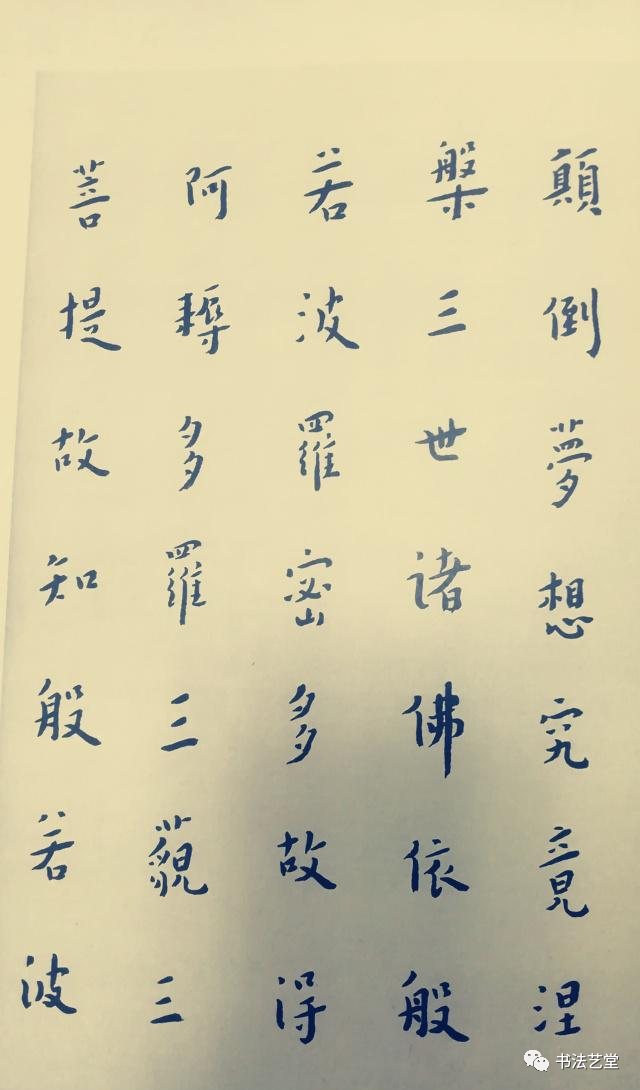 顛倒夢想究竟涅
槃三世诸佛依般
若波羅密多故得
阿耨多羅三藐三
菩提故知般若波
书法艺堂